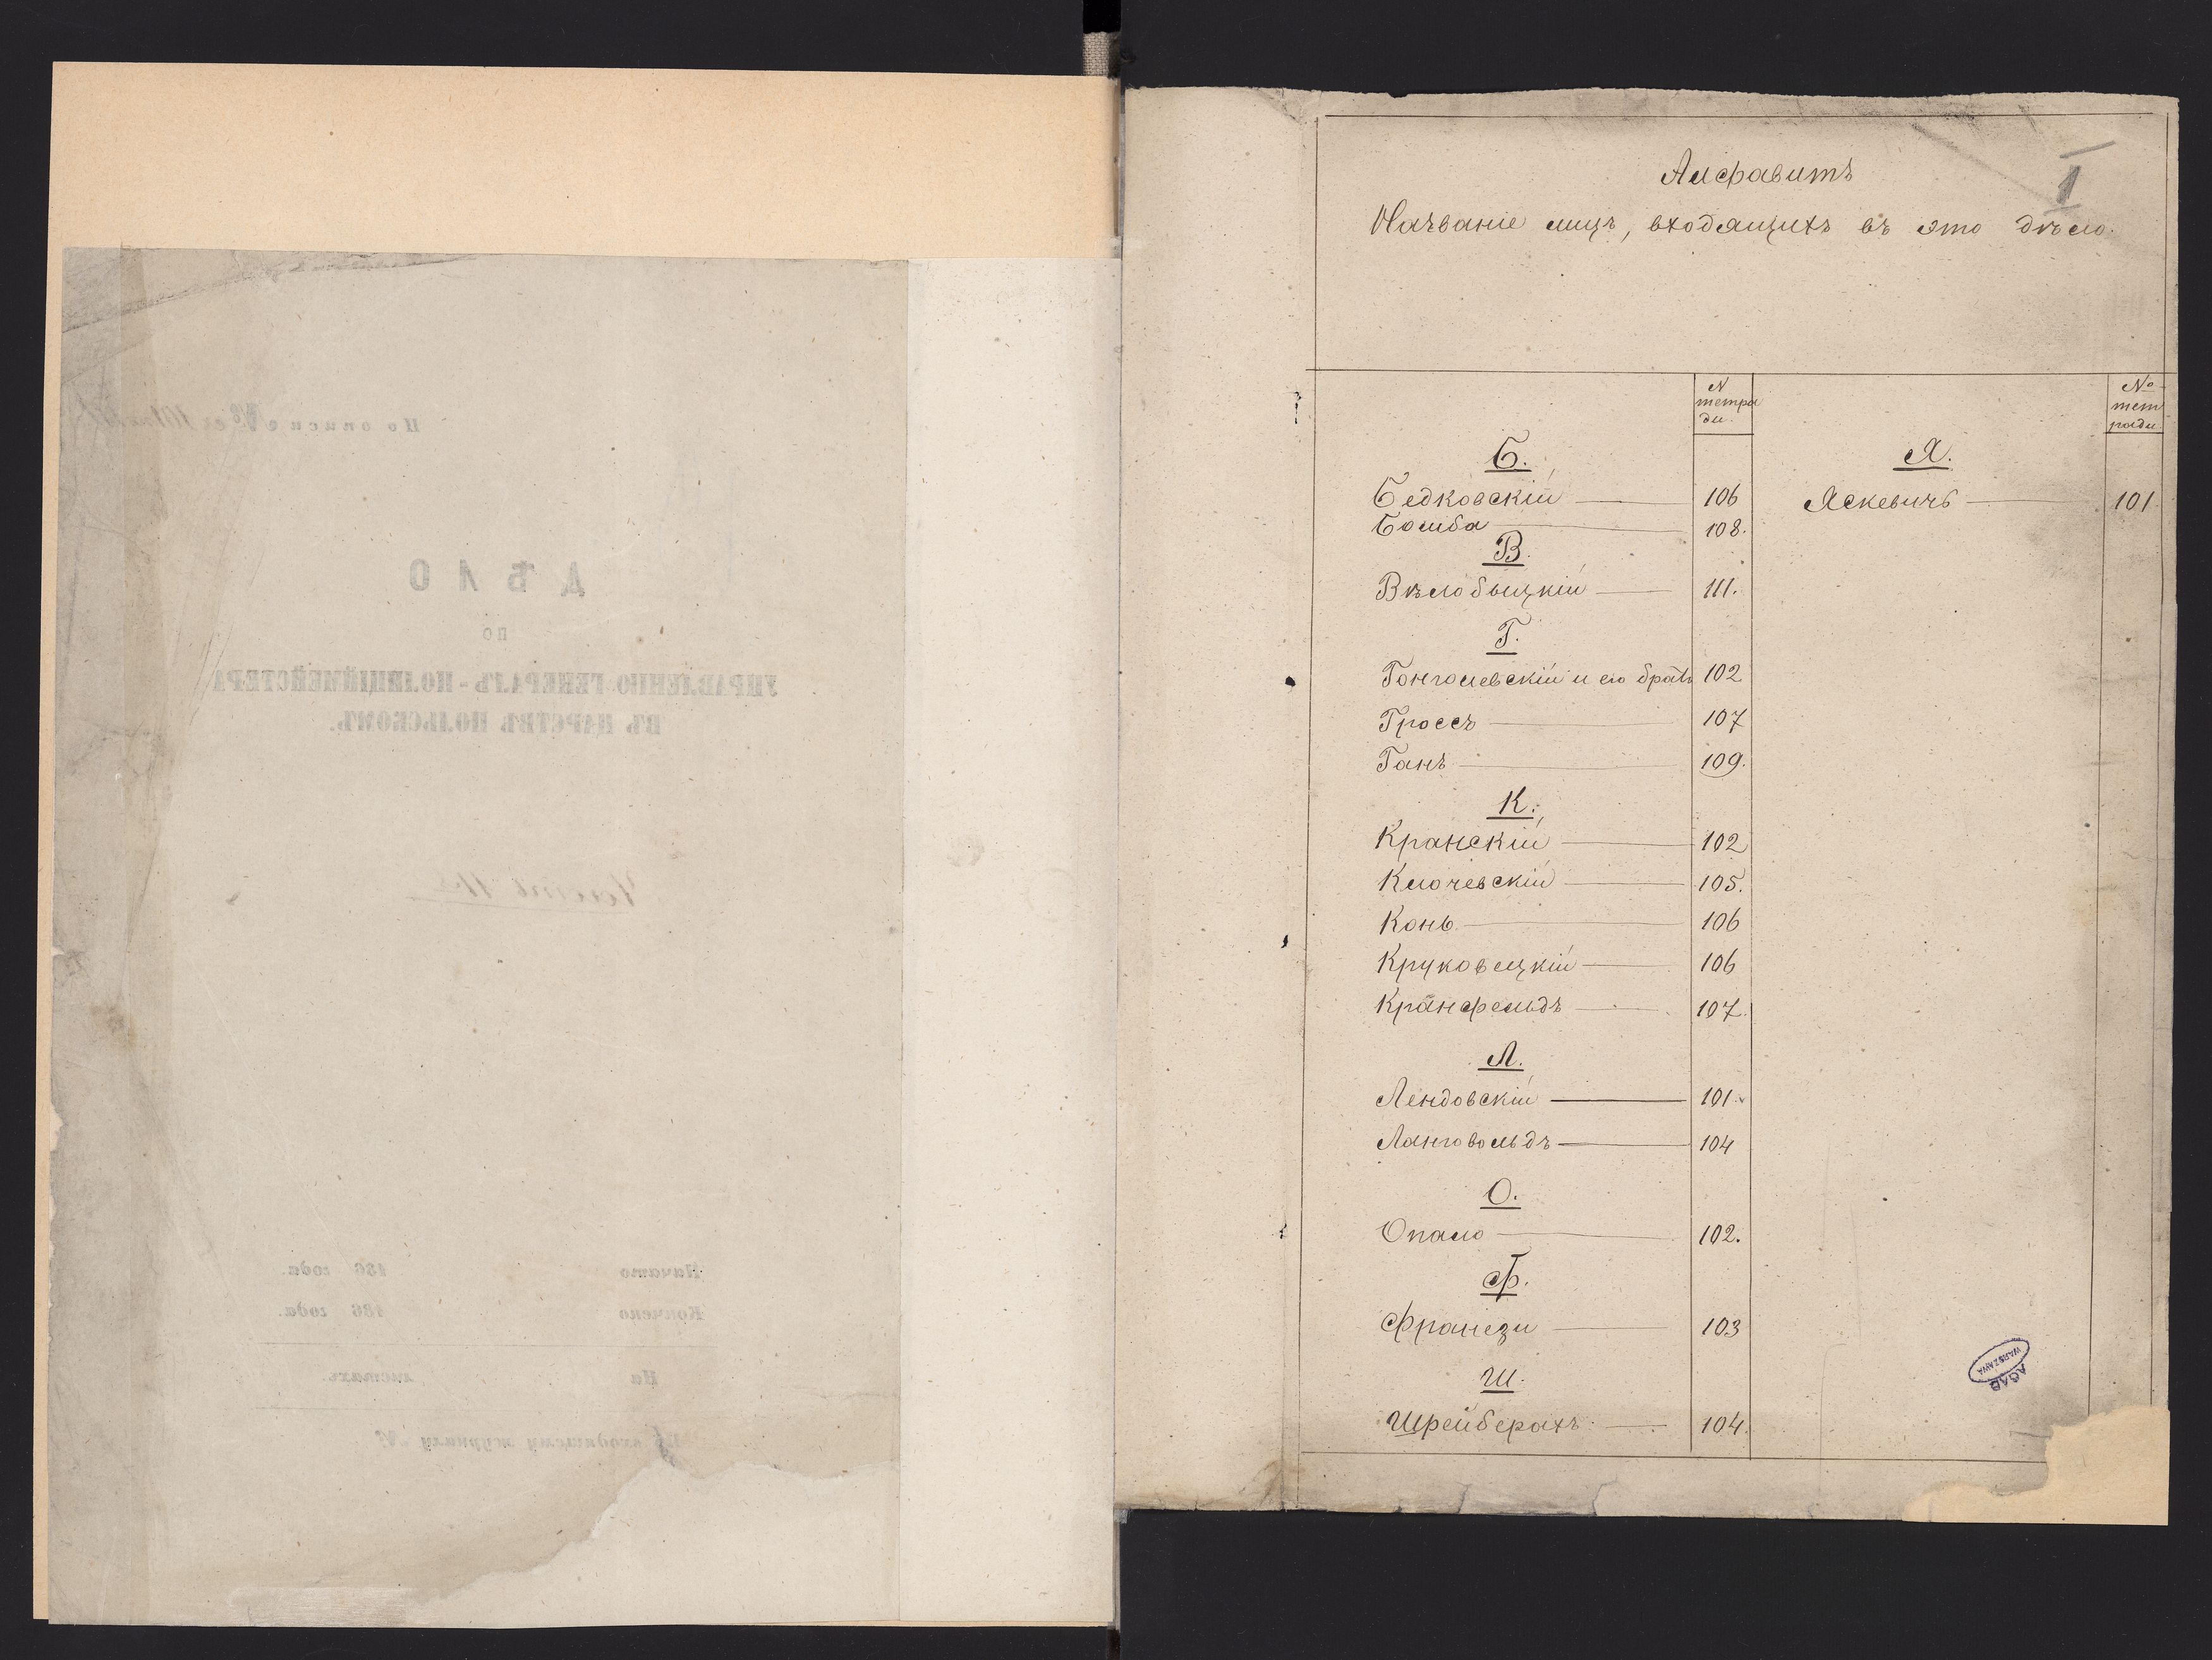 По описи №
ДѢЛО
ПО
УПРАВЛЕНІЮ ГЕНЕРАЛЪ-ПОЛИЦІЙМЕЙСТЕРА
ВЪ ЦАРСТВѢ ПОЛЬСКОМЪ.
Начато 186 года.
Кончено 186 года.
На листахъ.
входящему журналу №
1
Алфавитъ
Названіе лицъ, входящихъ въ это дѣло.
N тетра ди.
№ тет ради
Б.
Бедковскій 106
Бомба 108.
В.
Вѣлобыцкій 111.
Г.
Гонголевскій и его братъ 102
Гроссъ 107
Ганъ 109.
К.
Кранскій 102
Ключевскій 105.
Конь 106
Круковецкій 106
Кранфельдъ 107.
Л.
Лендовскій 101
Ланговольдъ 104
О.
Опало 102.
Ф.
Франези 103
Ш.
Шрейберахъ 104.
Я.
Яскевичъ 101
AGAD
WARSZAWA